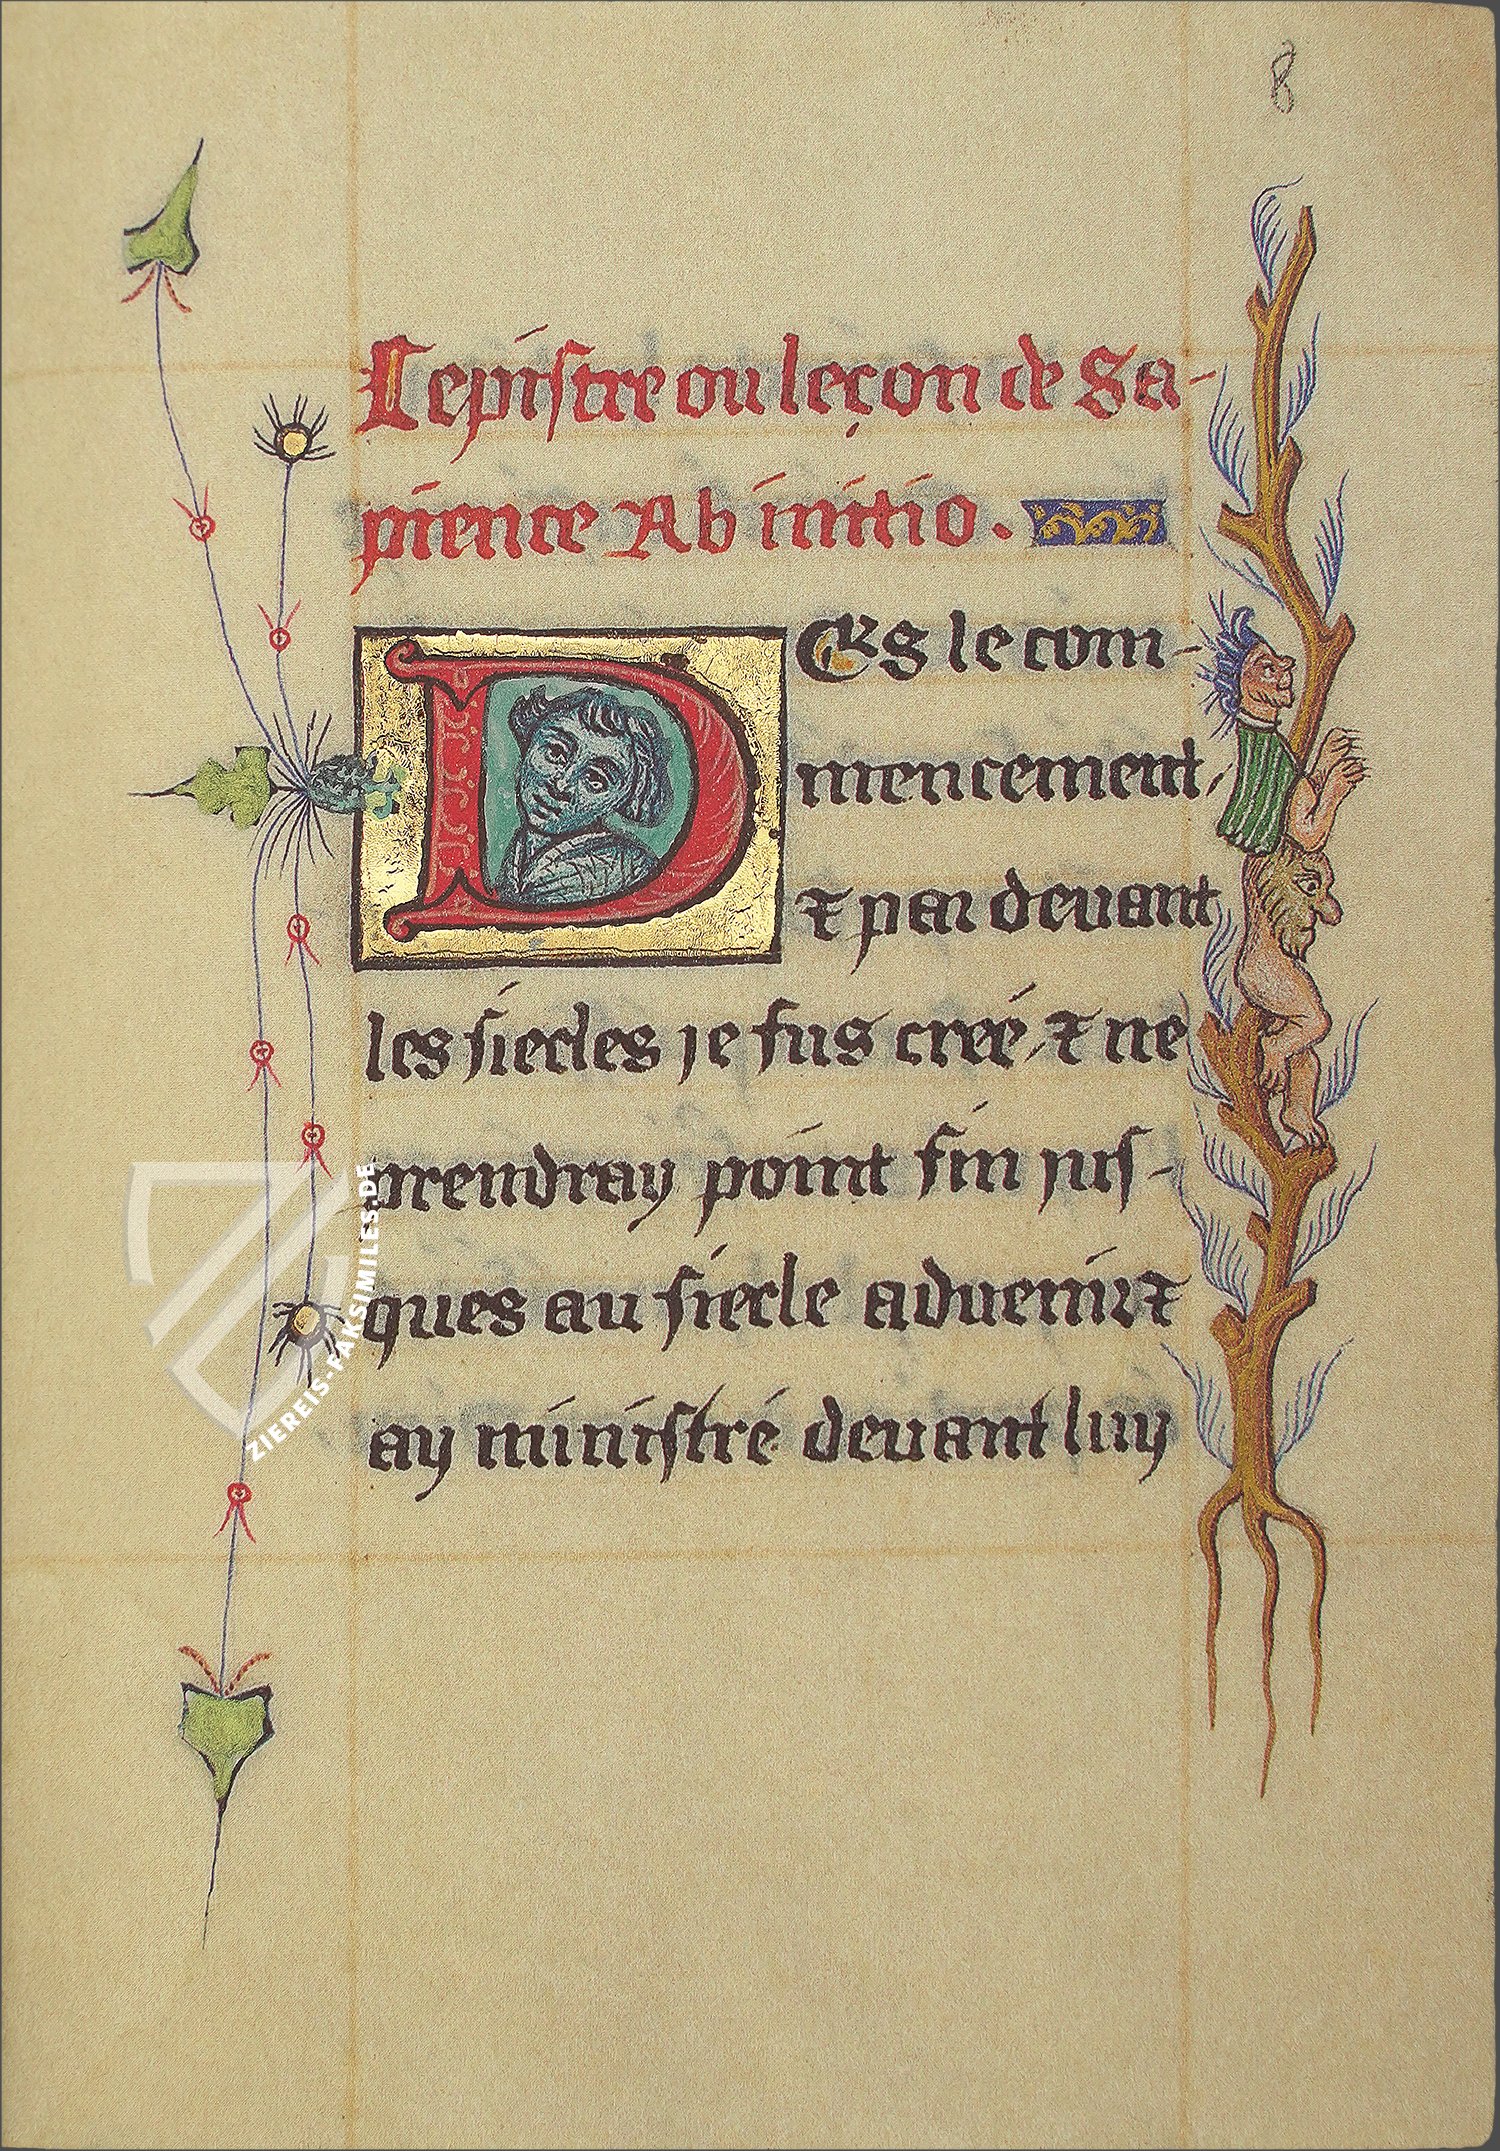 8
Lepistre ou leçon de Sa-
pience Ab initio.
DES le com-
mencement,
⁊ par devant
les siecles je fus creé, ⁊ ne
prendray point fin jus-
ques au siecle advenir ⁊
ay ministré devant luy
ZIEREIS-FAKSIMILES.DE